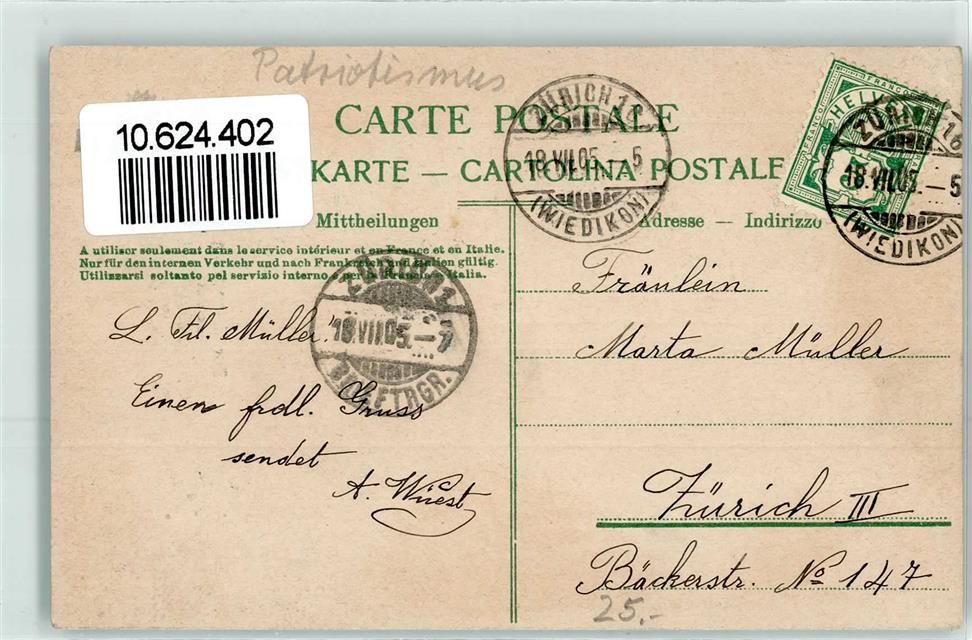 Patriotismus
10.624.402
CARTE POSTALE
KARTE — CARTOLINA POSTALE
Mittheilungen
Adresse — Indirizzo
A utiliser seulement dans le service intérieur et en France et en Italie.
Nur für den internen Verkehr und nach Frankreich und Italien gültig.
Utilizzarsi soltanto pel servizio interno e per la Francia e Italia.
ZÜRICH 16
18.VII.05.–5
(WIEDIKON)
FRANCO
HELVETIA
FRANCO
5
ZÜRICH 16
18.VII.05.–5
(WIEDIKON)
ZÜRICH 1
18.VII.05.–7
BRIEFTRGR.
L. Frl. Müller.
Einen frdl. Gruss
sendet
A. Wüest
Fräulein
Marta Müller
Zürich III
Bäckerstr. No 147
25.-